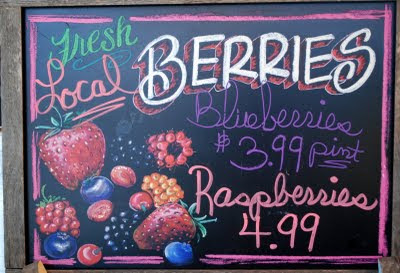 Fresh
Local BERRIES
Blueberries
$3.99 pint
Raspberries
4.99